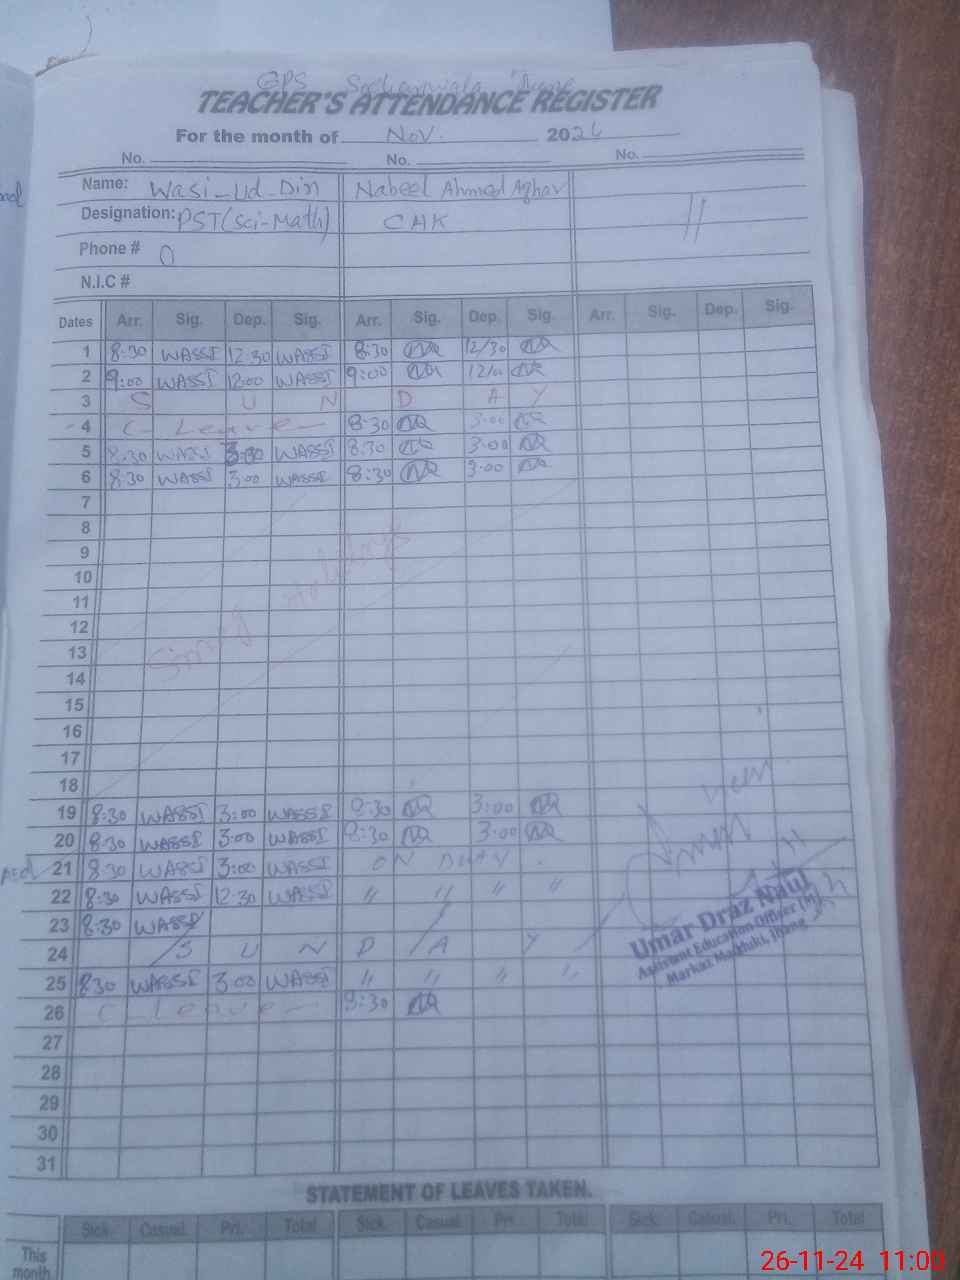 GPS
TEACHER'S ATTENDANCE REGISTER
For the month of Nov. 2024
No. No. No.
Name: Wasi-Ud-Din Nabeel Ahmed Azhar
Designation: PST(Sci-Math) CHK
Phone # 0
N.I.C #
Dates Arr. Sig. Dep. Sig. Arr. Sig. Dep. Sig. Arr. Sig. Dep. Sig.
1 8:30 WASSI 12:30 WASSI 8:30 12/30
2 9:00 WASSI 12:00 WASSI 9:00
3 S U N D A Y
4 C- Leave 8:30 3:00
5 8:30 WASSI 3:00 WASSI 8:30 3:00
6 8:30 WASSI 3:00 WASSI 8:30 3:00
7
8
9
10
11
12
Smog Holidays
13
14
15
16
17
18
19 8:30 WASSI 3:00 WASSI 8:30 3:00
20 8:30 WASSI 3:00 WASSI 8:30 3:00
21 8:30 WASSI 3:00 WASSI ON DUTY
22 8:30 WASSI 12:30 WASSI " " " "
23 8:30 WASSI
24 S U N D A Y
25 8:30 WASSI 3:00 WASSI " " " "
26 C leave 8:30
27
28
29
30
31
Umar Draz Naul
Assistant Education Officer (M)
Markaz Maghuki, Jhang
STATEMENT OF LEAVES TAKEN.
Sick Casual. Pri. Total Sick. Casual. Pri. Total Sick. Casual. Pri. Total
This
month
26-11-24 11:00